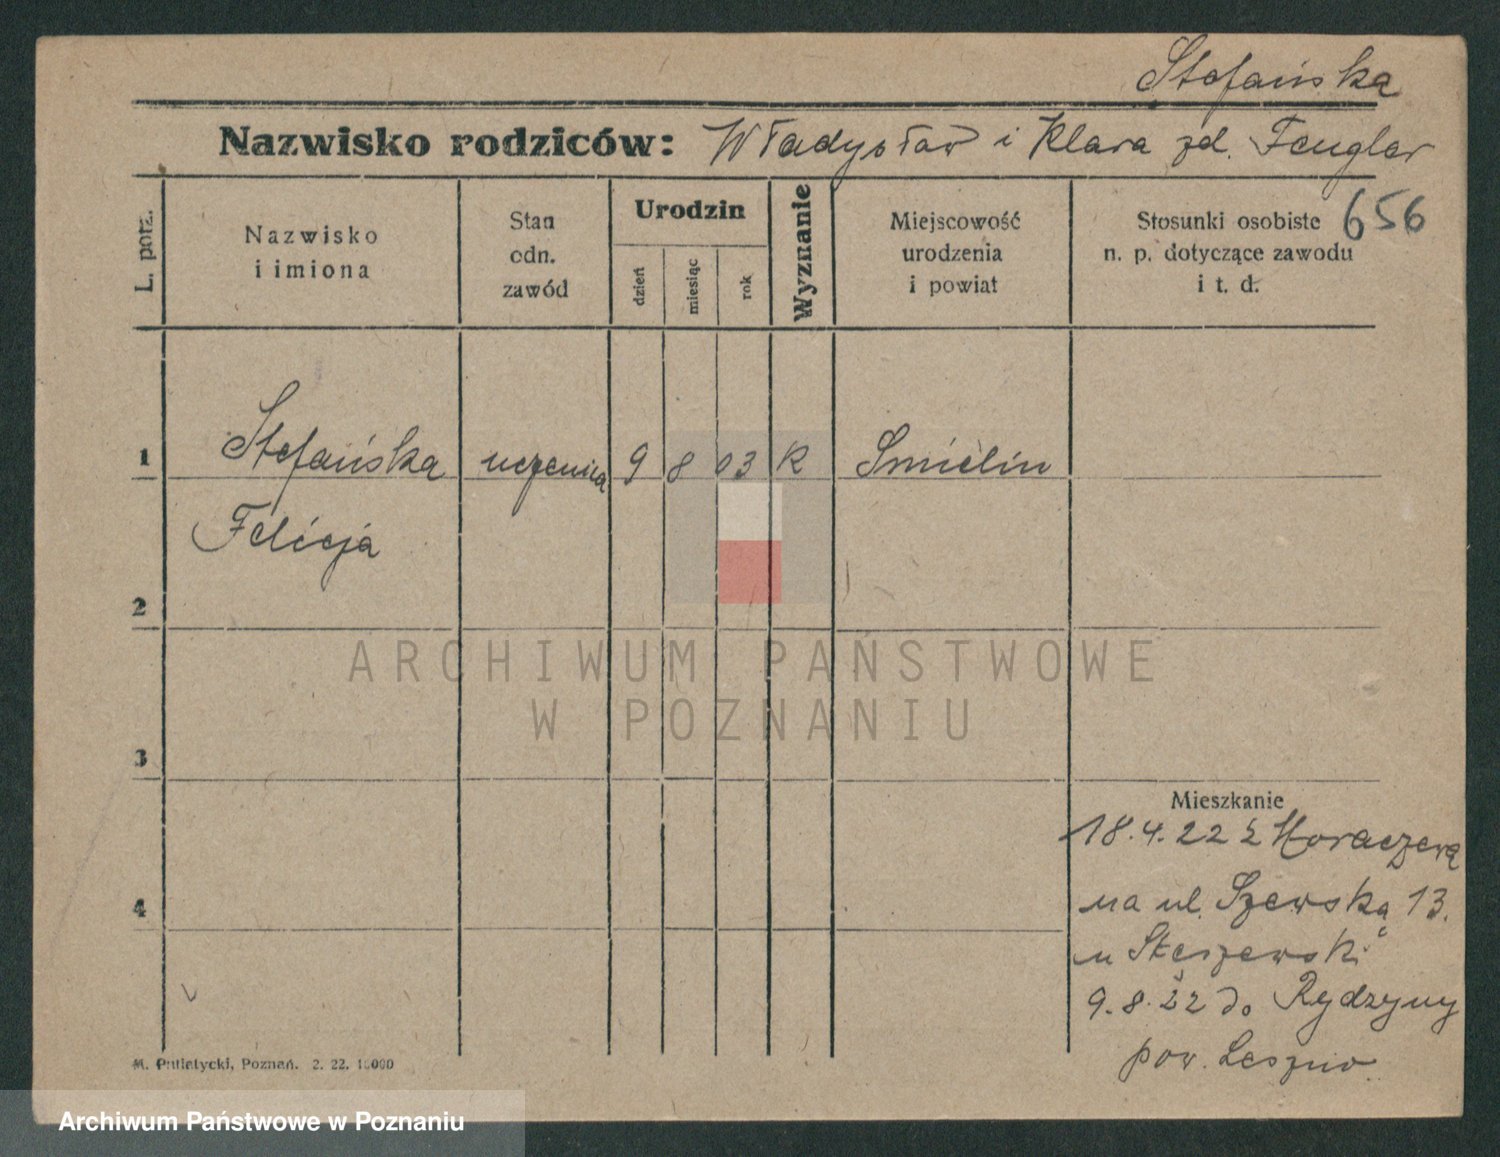 Stefańska
Nazwisko rodziców: Władysław i Klara zd. Feugler
L. porz.
Nazwisko
i imiona
Stan
odn.
zawód
Urodzin
dzień
miesiąc
rok
Wyznanie
Miejscowość
urodzenia
i powiat
Stosunki osobiste 656
n. p. dotyczące zawodu
i t. d.
1 Stefańska uczenica 9 8 03 K Śmielin
Felicja
2
ARCHIWUM PAŃSTWOWE
W POZNANIU
3
Mieszkanie
18.4.22 z
4 na ul. Szewska 13.
u
9.8.22 do Rydzyny
pow. Leszno.
M. Putiatycki, Poznań. 2. 22. 10000
Archiwum Państwowe w Poznaniu